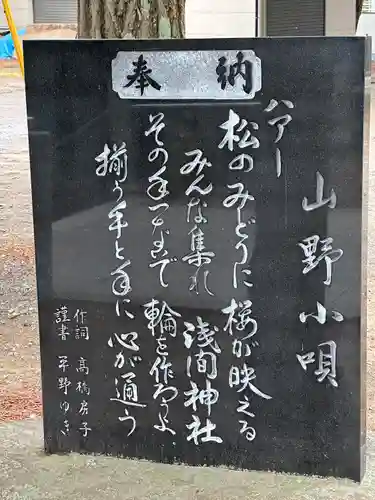 奉納
山野小唄
ハアー
松のみどりに 桜が映える
みんな集れ 浅間神社
その手 で 輪を作ろよ
揃う手と手に 心が通う
作詞 高橋房子
謹書 野ゆき